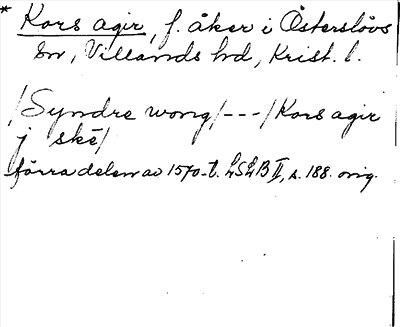 * Kors agir, f. åker i Österslövs
sn, Villands hd, Krist. l.
/Syndre wong/---/Kors agir
j skě/
förra delen av 1570-t. LSLB II, s. 188. orig.